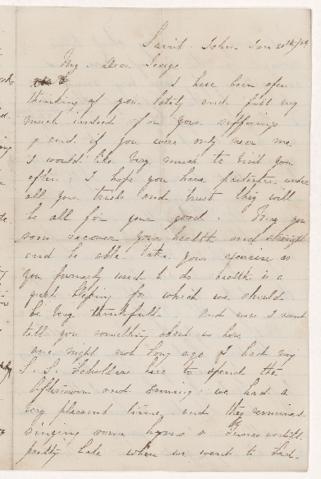 Saint John Jan 20th/
My Dear George
I have been often
thinking of you lately and felt very
much indeed for your sufferings
and if you were only near me
I would like very much to visit you
often. I hope you have patience under
all your trials and trust they will
be all for your good. May you
soon recover your health and strength
and be able take your exercise as
you formerly used to do health is a
great blessing for which we should
be very thankfull. and now I want
tell you something about us here
one night not long ago I had my
S. S. Scholars here to spend the
afternoon and evening we had a
very pleasent time, and they
singing some hymns &
pretty late when we went to bed.